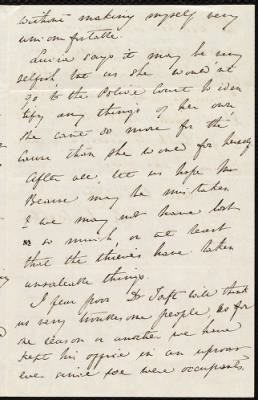 without making myself very
uncomfortable.
says it may be very
selfish but as she would n't
go to the Police Court to iden
tify any things of her own
she can't so more for the
cause than she would for herself
After all, let us hope Mr
may be mistaken
& we may not have lost
so much, or at least
that the thieves have taken
unsaleable things.
I fear poor Dr Taft will think
us very troublesome people, as for
one reason or another we have
kept his office in an uproar
ever since we were occupants.